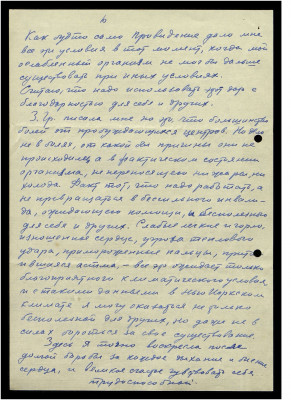 6
Как будто само Провидение дало мне
все эти условия в тот момент, когда мой
ослабленный организм не мог бы дальше
существовать при иных условиях.
Считаю, что надо использовать этот дар с
благодарностью для себя и других.
З.Гр. писала мне что большинство
болей от пробуждающихся центров. Но дело
не в болях, от какой бы причины они не
происходили, а в фактическом состоянии
организма, не переносящего ни жары, ни
холода. Факт тот, что надо работать, а
не превращаться в бессильного инвали-
да, ожидающего помощи, и бесполезного
для себя и других. Слабые легкие и горло,
изношенное сердце, угроза теплового
удара, примороженные пальцы, прито-
вшаяся астма – все это ожидает только
благоприятного климатического условия,
и с такими данными в Нью Йоркском
климате я могу оказаться не только
бесполезной для других, но даже не в
силах бороться за свое существование.
Здесь я точно воскресла после
долгой борьбы за каждое дыхание и биение
сердца, и великое счастье чувствовать себя
трудоспособной